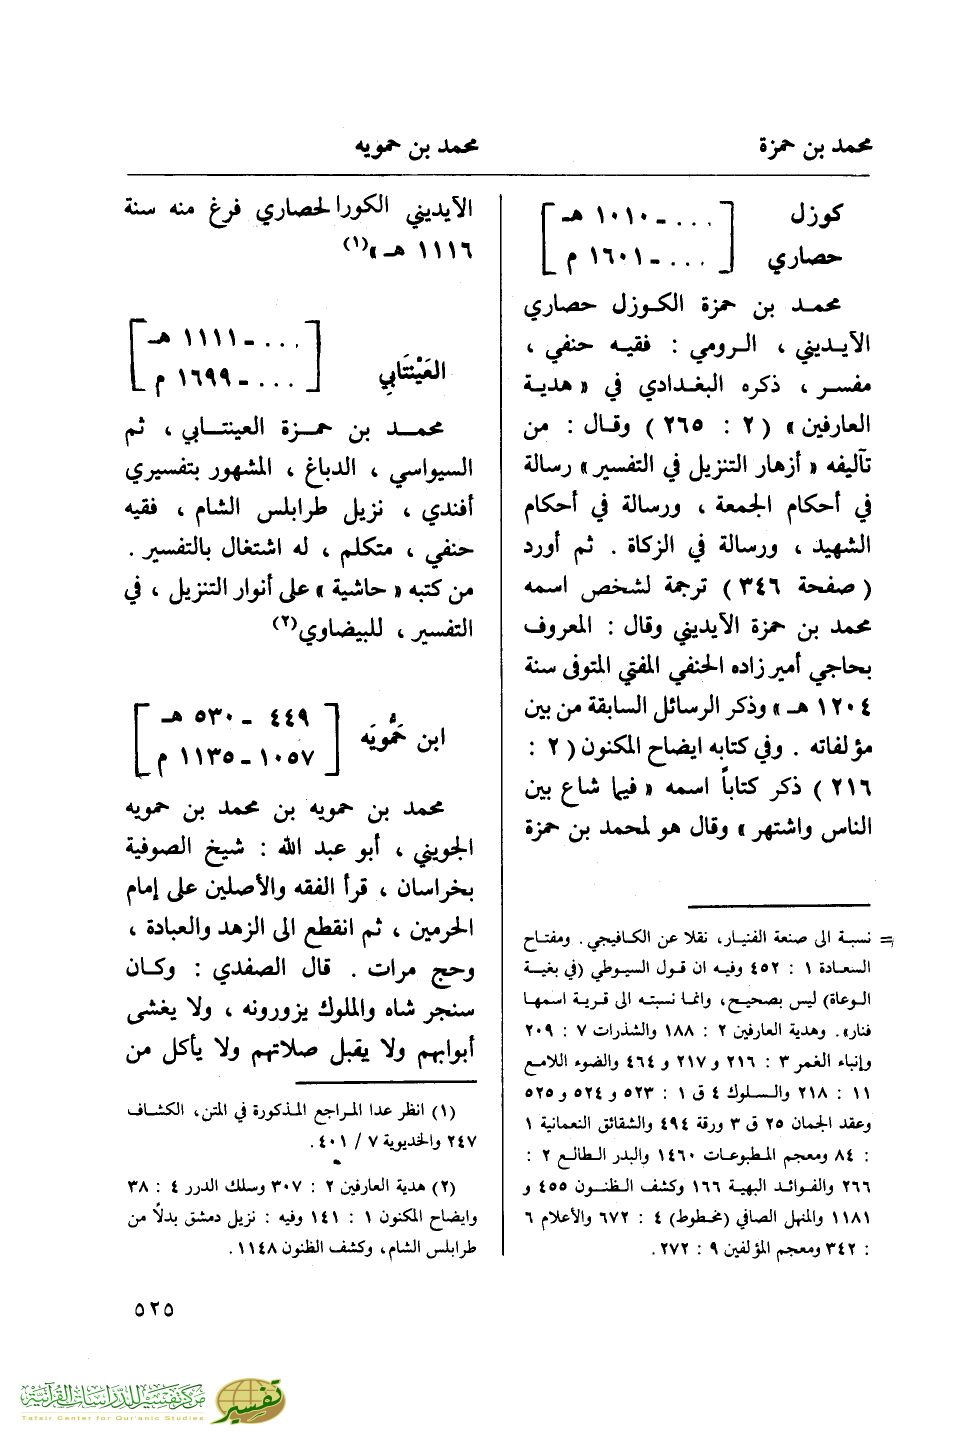 محمد بن حمزة
محمد بن حمويه
كوزل
حصاري
[ ... - ١٠١٠ هـ
... - ١٦٠١ م ]
محمد بن حمزة الكوزل حصاري
الآيديني ، الرومي : فقيه حنفي ،
مفسر ، ذكره البغدادي في « هدية
العارفين » ( ٢ : ٢٦٥ ) وقال : من
تآليفه « أزهار التنزيل في التفسير » رسالة
في أحكام الجمعة ، ورسالة في أحكام
الشهيد ، ورسالة في الزكاة . ثم أورد
( صفحة ٣٤٦ ) ترجمة لشخص اسمه
محمد بن حمزة الآيديني وقال : المعروف
بحاجي أمير زاده الحنفي المفتي المتوفى سنة
١٢٠٤ هـ » وذكر الرسائل السابقة من بين
مؤلفاته . وفي كتابه ايضاح المكنون ( ٢ :
٢١٦ ) ذكر كتاباً اسمه « فيما شاع بين
الناس واشتهر » وقال هو لمحمد بن حمزة
= نسبة الى صنعة الفنيار، نقلا عن الكافيجي. ومفتاح
السعادة ١ : ٤٥٢ وفيه ان قول السيوطي (في بغية
الوعاة) ليس بصحيح، وانما نسبته الى قرية اسمها
فنار». وهدية العارفين ٢ : ١٨٨ والشذرات ٧ : ٢٠٩
وإنباء الغمر ٣ : ٢١٦ و ٢١٧ و ٤٦٤ والضوء اللامع
١١ : ٢١٨ والسلوك ٤ ق ١ : ٥٢٣ و ٥٢٤ و ٥٢٥
وعقد الجمان ٢٥ ق ٣ ورقة ٤٩٤ والشقائق النعمانية ١
: ٨٤ ومعجم المطبوعات ١٤٦٠ والبدر الطالع ٢ :
٢٦٦ والفوائد البهية ١٦٦ وكشف الظنون ٤٥٥ و
١١٨١ والمنهل الصافي (مخطوط) ٤ : ٦٧٢ والأعلام ٦
: ٣٤٢ ومعجم المؤلفين ٩ : ٢٧٢.
الآيديني الكورالحصاري فرغ منه سنة
١١١٦ هـ »(١)
العَيْنتَابي
[ ... - ١١١١ هـ
... - ١٦٩٩ م ]
محمد بن حمزة العينتابي ، ثم
السيواسي ، الدباغ ، المشهور بتفسيري
أفندي ، نزيل طرابلس الشام ، فقيه
حنفي ، متكلم ، له اشتغال بالتفسير .
من كتبه « حاشية » على أنوار التنزيل ، في
التفسير ، للبيضاوي(٢)
ابن حَمُّويَه
[ ٤٤٩ - ٥٣٠ هـ
١٠٥٧ - ١١٣٥ م ]
محمد بن حمويه بن محمد بن حمويه
الجويني ، أبو عبد الله : شيخ الصوفية
بخراسان ، قرأ الفقه والأصلين على إمام
الحرمين ، ثم انقطع الى الزهد والعبادة ،
وحج مرات . قال الصفدي : وكان
سنجر شاه والملوك يزورونه ، ولا يغشى
أبوابهم ولا يقبل صلاتهم ولا يأكل من
(١) انظر عدا المراجع المذكورة في المتن، الكشاف
٢٤٧ والخديوية ٧ / ٤٠١.
(٢) هدية العارفين ٢ : ٣٠٧ وسلك الدرر ٤ : ٣٨
وايضاح المكنون ١ : ١٤١ وفيه : نزيل دمشق بدلاً من
طرابلس الشام، وكشف الظنون ١١٤٨.
٥٢٥
مركز تفسير للدراسات القرآنية
Tafsir Center for Qur'anic Studies
تفسير